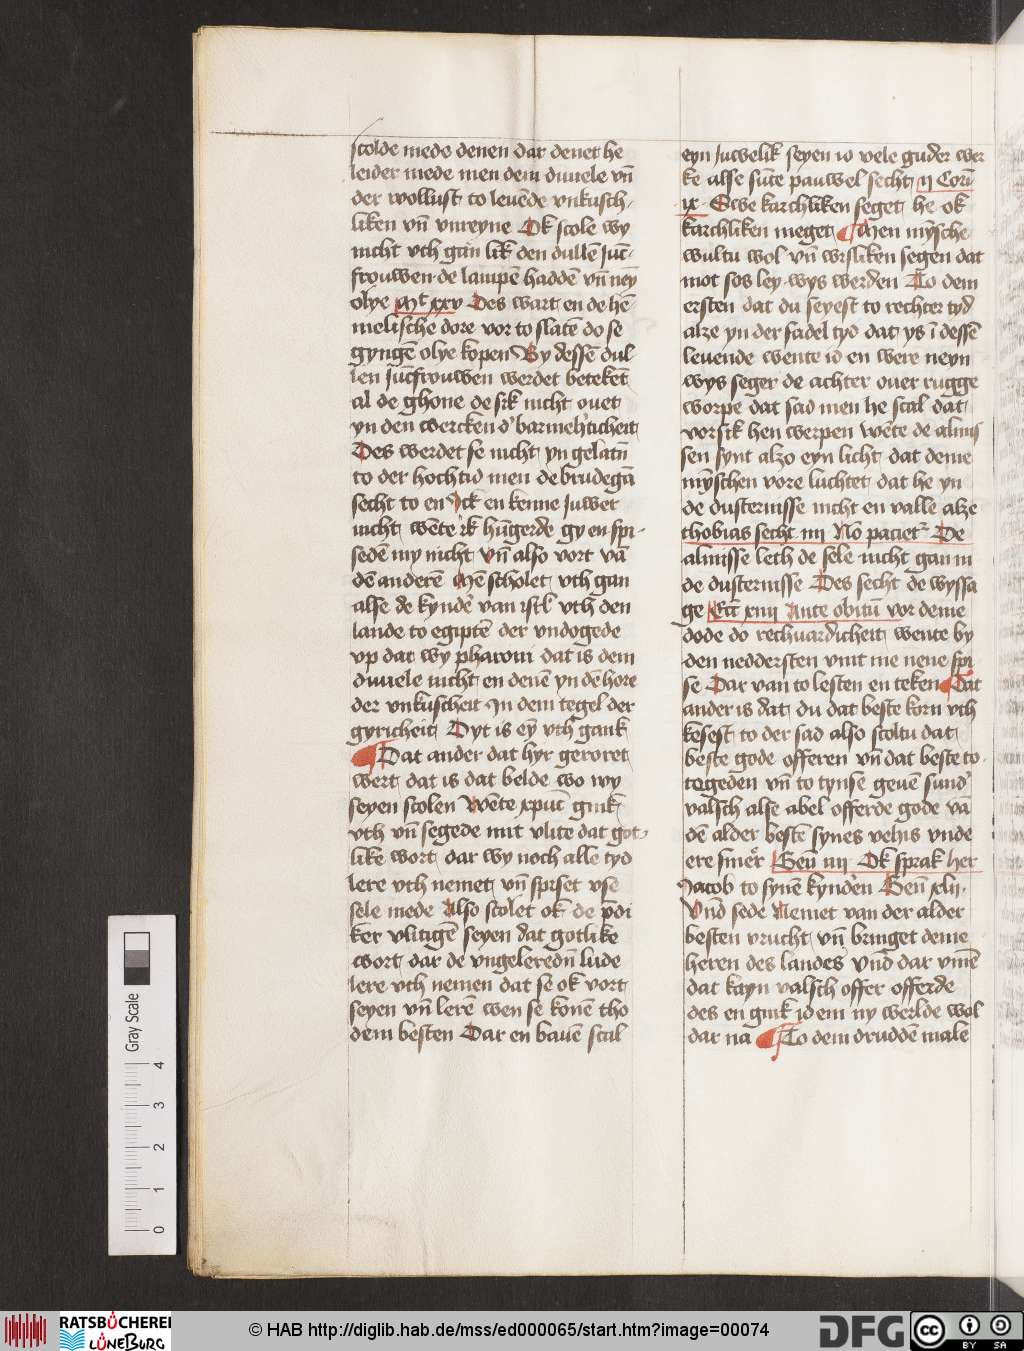 scolde mede denen dar denet he
leider mede men dem duuele vn̄
der wollust to leuēde vnkusch¬
liken vn̄ vnreyne Ok scole wy
nicht vth gan lik den dullē juc̄¬
frouwen de lampē haddē vn̄ neȳ
olye Mt xxv Des wart en de hē¬
melische dore vor to slatē do se
gyngē olye kopen By dessē dul
len juc̄frouwen werdet beteket
al de ghone de sik nicht ouet
yn den wercken d' barmeh'ticheit
Des werdet se nicht yn gelatn̄
to der hochtid men de brudegā
secht to en Ick en kenne juwer
nicht wēte ik hūgerde gy en spi¬
sedē my nicht vn̄ also vort vā
dē anderē Mē scholet vth gan
alse de kynd'e van isrl' vth den
lande to egiptē der vndogede
vp dat wy pharoni dat is dem
duuele nicht en denē yn dē hore
der vnkuscheit In dem tegel der
gyricheit Dyt is eȳ vth gank
¶ Dat ander dat hyr geroret
wert dat is dat belde wo wy
seyen scolen Wēte xpūc gink
vth vn̄ segede mit vlite dat got¬
like wort dar wy noch alle tyd
lere vth nemet vn̄ spiset vse
sele mede Also scolet ok de p̄di
ker vlitigē seyen dat gotlike
wort dar de vngeleredn̄ lude
lere vth nemen dat se ok vort
seyen vn̄ lerē wen se konē tho
dem besten Dar en bauē scal
eyn juwelik seyen io vele guder wer
ke alse sūte pauwel secht ij Cori
ix · Swe karchliken seget he ok
karchliken meget ¶ Men mȳsche
wultu wol vn̄ wisliken segen dat
mot sos ley wys werden To dem
ersten dat du seyest to rechter tyd
alze yn der sadel tyd dat ys ī dessē
leuende wente id en were neyn
wys seger de achter ouer rugge
worpe dat sad men he scal dat
vorsik hen werpen wēte de almis
sen synt alzo eyn licht dat deme
mȳschen vore luchtet dat he yn
de dusternisse nicht en valle alze
thobias secht iiij No paciet' De
almisse leth de sele nicht gan in
de dusternisse Des secht de wyssa
ge Ecc̄ xiiij Ante obitū vor deme
dode do rechuardicheit wente by
den neddersten vint me nene spi
se Dar van to lesten en teken ¶ Dat
ander is dat du dat beste korn vth
kesest to der sad also scoltu dat
beste gode offeren vn̄ dat beste to·
togeden vn̄ to tynse geuē sund'
valsch alse abel offerde gode vā
dē alder bestē synes vehis vnde
ere smer Gen̄ iiij Ok sprak her
Jacob to synē kynd'en Gen̄ xlij·
Vnd sede Nemet van der alder
besten vrucht vn̄ bringet deme
heren des landes Vnd dar vmē
dat kayn valsch offer offerde
des en gink id em ny werlde wol
dar na ¶ To dem druddē male
Gray Scale
0 1 2 3 4
RATSBÜCHEREI
LÜNEBURG
© HAB http://diglib.hab.de/mss/ed000065/start.htm?image=00074
DFG
cc BY SA